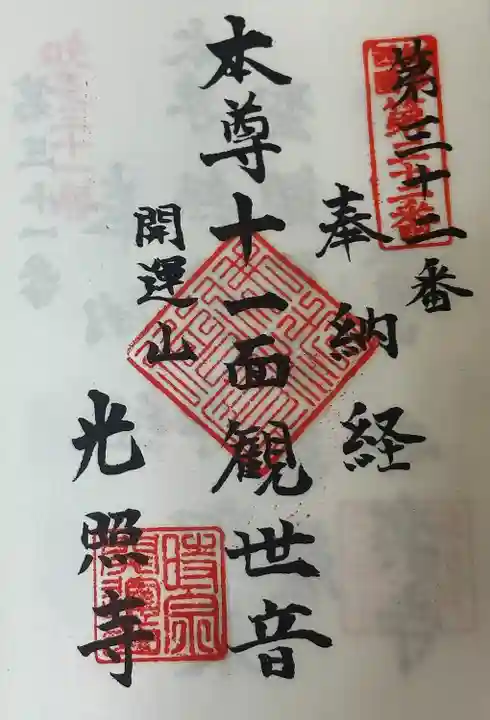 第三十二番
奉納経
本尊十一面観世音
開運山
光照寺
時宗